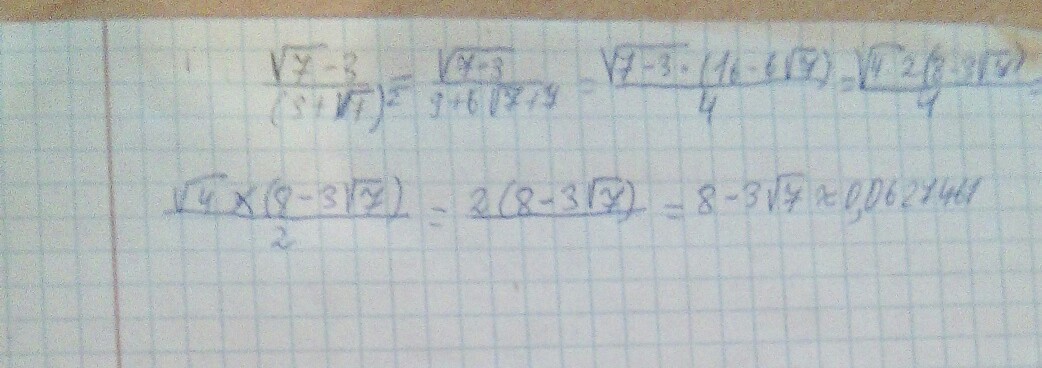 √7-3/(3+√7)² = √7-3/9+6√7+7 = √7-3·(16-6√7)/4 = √4·2(8-3√7)/4 =
√4×(8-3√7)/2 = 2(8-3√7) = 8-3√7≈0,0627461